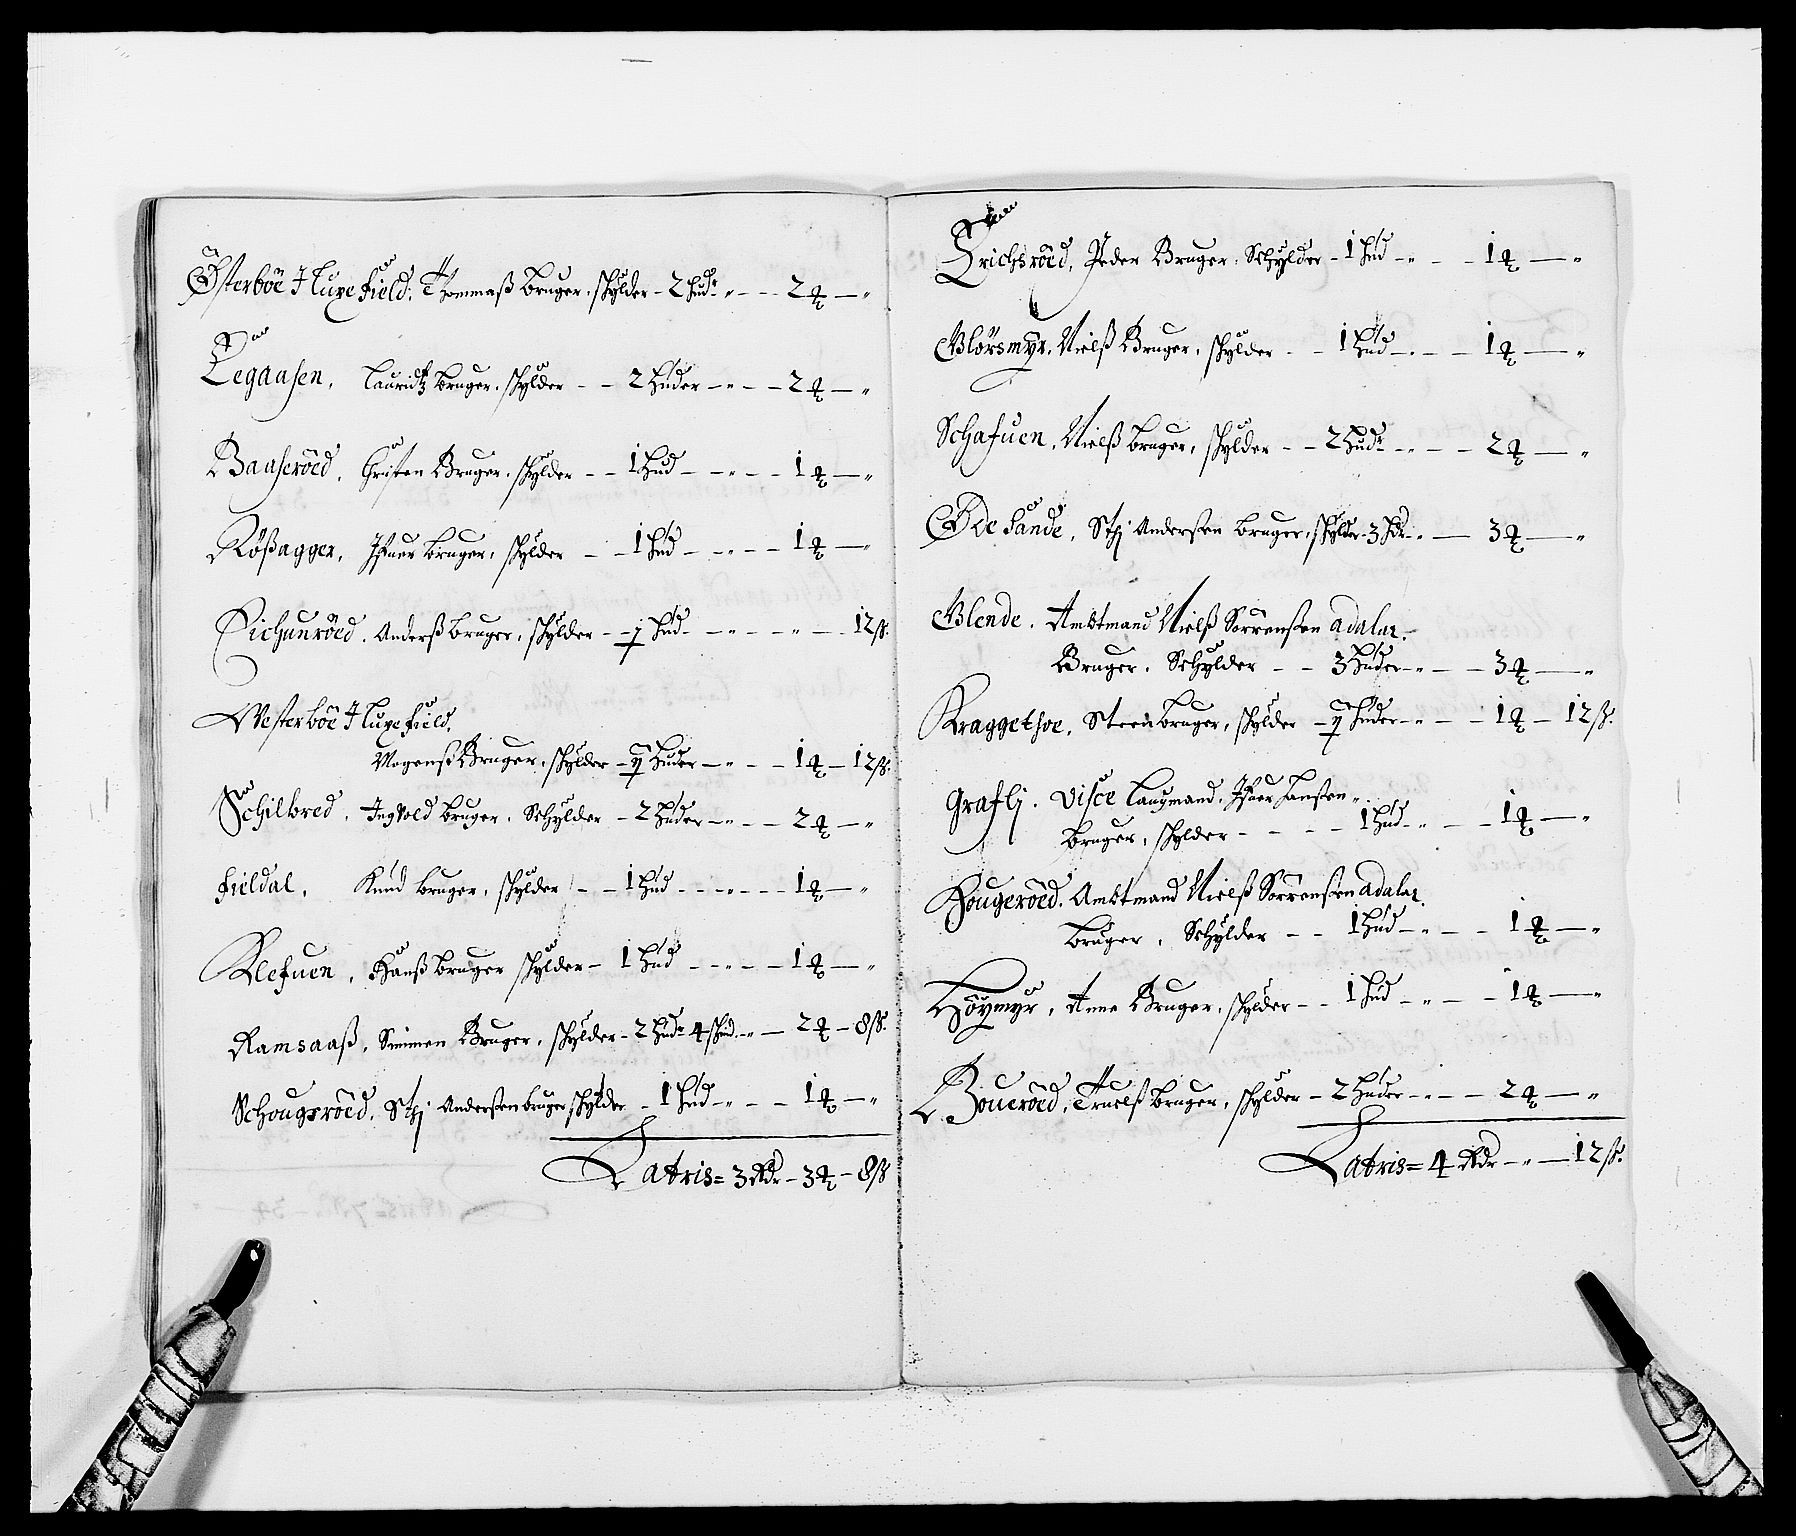 Østerböe I Luxefield, Thommaß bruger, schylder – 2 hudr „ – – 2 ꝗ – „
Legaasen, Lauridtz bruger, schylder – – 2 huder – „ – – 2 ꝗ – „
Baaseröed, Gristen Bruger, schylder – – 1 hud – „ – – 1 ꝗ – „
Rößagger, Ifuer bruger, schylder – – 1 hud – „ – – 1 ꝗ – „
Eichunröed, Anderß bruger, schylder – ½ hud – „ – „ – 12 ß.
Westerböe I Luxefield,
Mogenß Bruger, schylder – huder – „ – – 1 ꝗ – 12 ß.
Schilbred, Ingvold bruger, Schylder – 2 huder – „ – – 2 ꝗ – „
Fieldal, Knud bruger, schylder – – 1 hud – – „ – – 1 ꝗ – „
Klefuen, Hanß bruger schylder – 1 hud – – „ – – 1 ꝗ – „
Ramsaaß, Simmen Bruger, schylder – 2 hudr 4 skind „ – 2 ꝗ – 8 ß.
Schougsröed, Sti Anderßen bruger schylder – 1 hud – „ – – 1 ꝗ – „
Latris = 3 Rdr – 3 ꝗ – 8 ß
Erichsröed, Peder Bruger, Schylder – 1 hud – „ – – 1 ꝗ – „
Blörsmyr, Nielß Bruger, schylder – – 1 hud – „ – – 1 ꝗ – „
Schafuen, Nielß bruger, schylder – – 2 hudr – „ – – 2 ꝗ – „
Øde Sande, Sti Anderßen bruger, schylder – 3 hdr – „ – 3 ꝗ – „
Blende, Ambtmand Nielß Sörrenßen adalar.
Bruger, Schylder – – 3 huder – „ – – 3 ꝗ – „
Kraggethoe, Steen bruger, schylder – huder – „ – – 1 ꝗ – 12 ß.
Grafli, Visce Laugmand, Ifuer Hanßen „
bruger, schylder – – – – 1 hud – „ – – 1 ꝗ – „
Hougeröed, Ambtmand Nielß Sörrenßen adalar.
bruger, Schylder – – 1 hud – „ – – 1 ꝗ – „
Höymyr, Anne Bruger, schylder – – 1 hud – „ – – 1 ꝗ – „
Boueröed, Truelß bruger, schylder – 2 huder – „ – – 2 ꝗ – „
Latris = 4 Rdr – „ – 12 ß.